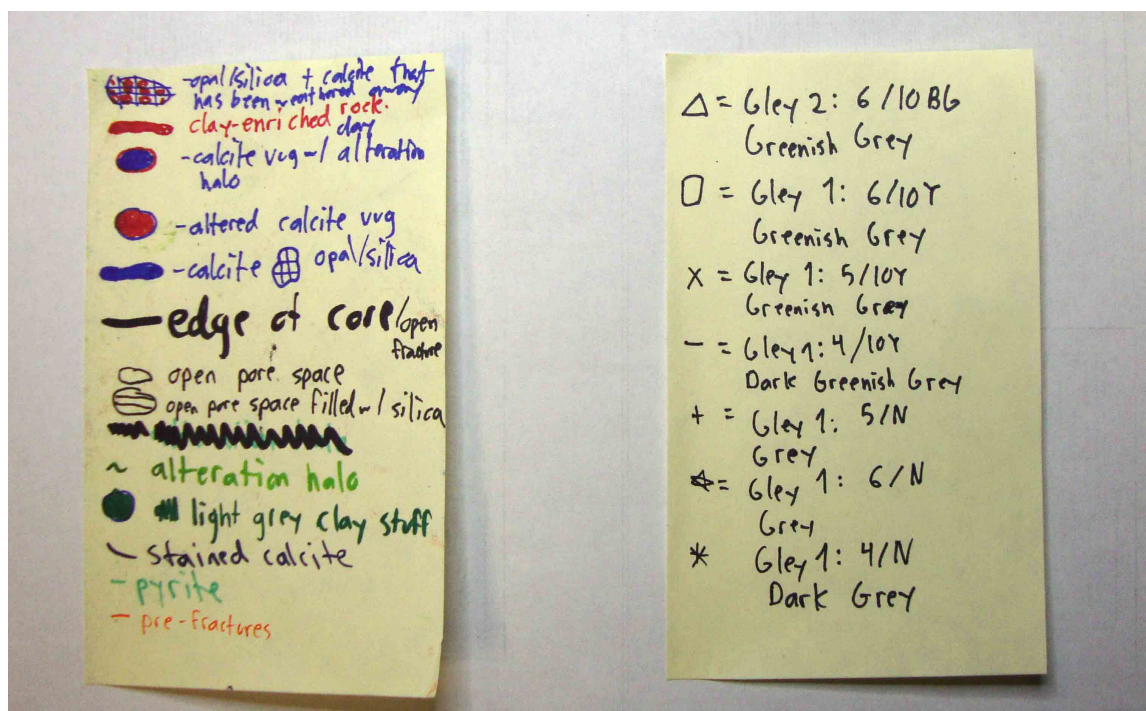 -opal/silica + calcite that
has been weathered away
clay-enriched rock.
clay
-calcite vug w/ alteration
halo
-altered calcite vug
-calcite opal/silica
edge of core/open
fracture
open pore space
open pore space filled w/ silica
~ alteration halo
light grey clay stuff
stained calcite
- pyrite
- pre-fractures
△ = Gley 2: 6/10BG
Greenish Grey
▯ = Gley 1: 6/10Y
Greenish Grey
X = Gley 1: 5/10Y
Greenish Grey
- = Gley 1: 4/10Y
Dark Greenish Grey
+ = Gley 1: 5/N
Grey
☆ = Gley 1: 6/N
Grey
* Gley 1: 4/N
Dark Grey